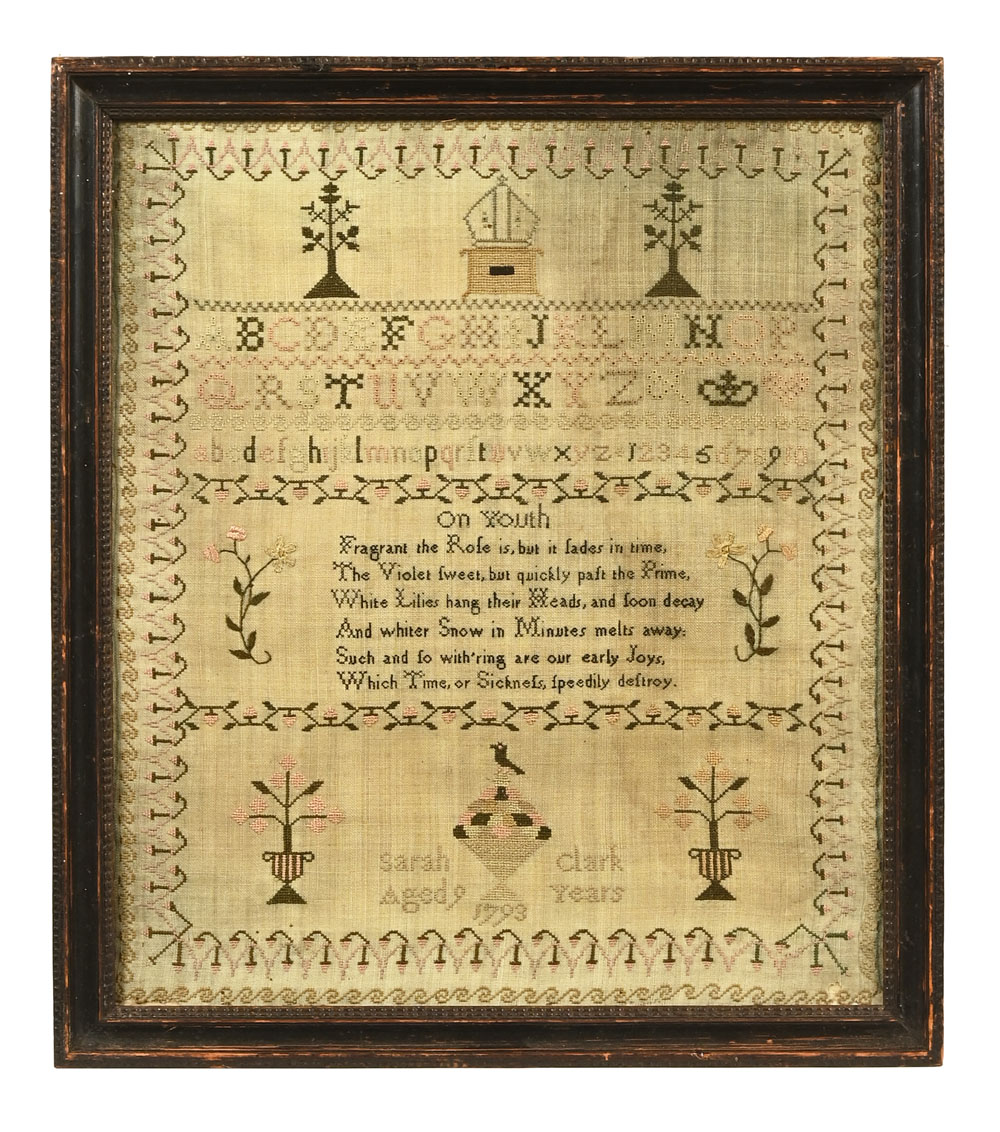 A B C D E F G H I J K L M N O P
Q R S T U V W X Y Z
a b c d e f g h i j k l m n o p q r ſ t u v w x y z 1 2 3 4 5 6 7 8 9 10
On Youth
Fragrant the Roſe is, but it fades in time,
The Violet ſweet, but quickly paſt the Prime,
White Lilies hang their Heads, and ſoon decay
And whiter Snow in Minutes melts away:
Such and ſo with'ring are our early Joys,
Which Time, or Sickneſs, ſpeedily deſtroy.
Sarah Clark
Aged 9 Years
1793